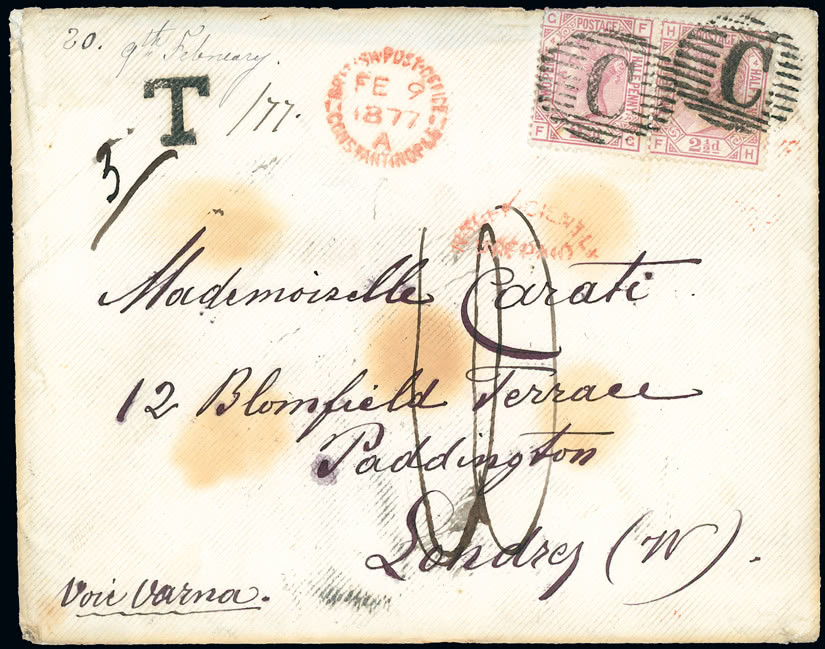 20.
9th February.
T
/77.
5/
BRITISH POST OFFICE
FE 9
1877
A
CONSTANTINOPLE
G POSTAGE F
HALFPENNY
F G
C
H POSTAGE
HALF
F 2½d H
C
INSUFFICIENTLY
PREPAID
10
Mademoiselle Carati
12 Blomfield Terrace
Paddington
Londres (W).
Voie Varna.